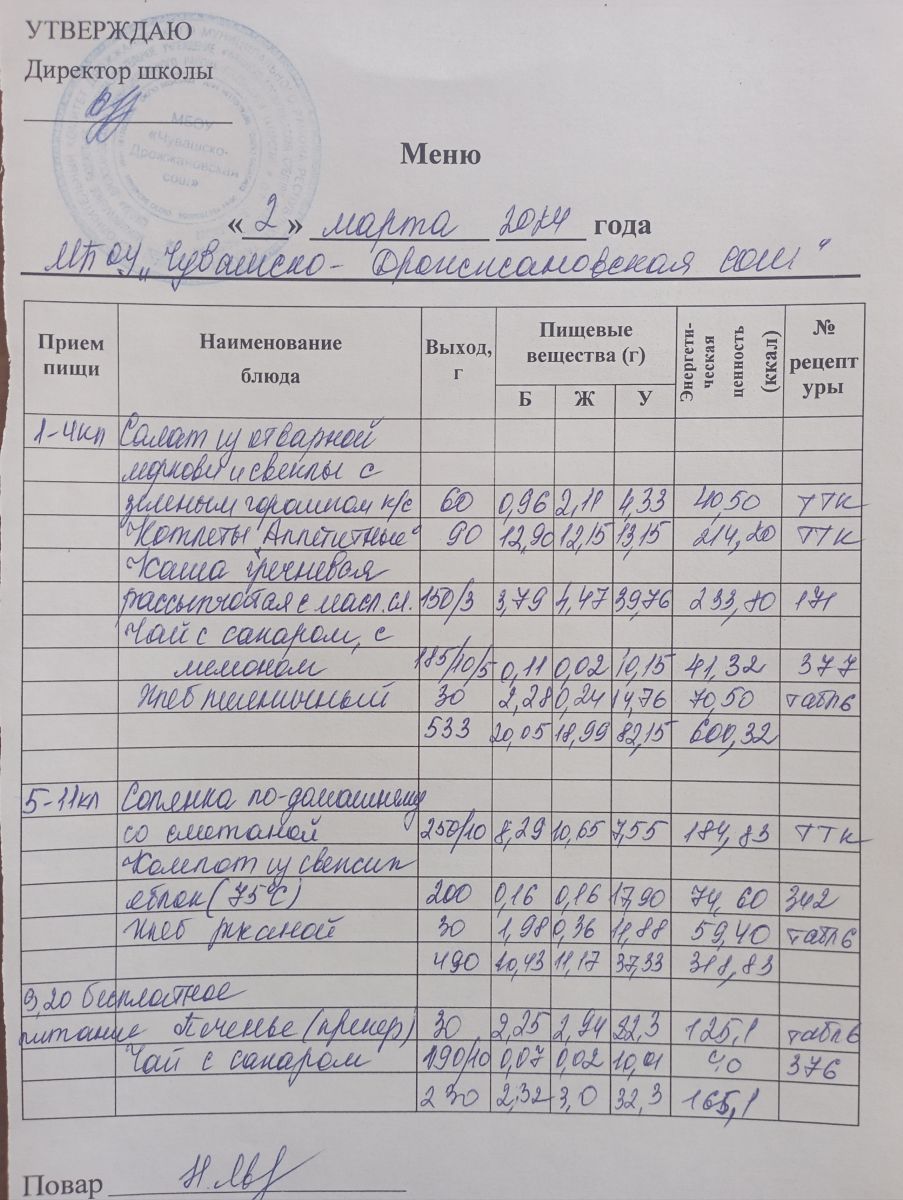 УТВЕРЖДАЮ
Директор школы
МБОУ
«Чувашско-
Дрожжановская
сош»
Меню
« 2 » марта 2024 года
МБОУ „Чувашско- Дрожжановская сош"
Прием пищи Наименование блюда Выход, г Пищевые вещества (г) Б Ж У Энергети-ческая ценность (ккал) № рецептуры
1-4кл Салат из отварной
моркови и свеклы с
зеленым горошком к/с 60 0,96 2,11 4,33 40,50 ТТК
Котлеты "Аппетитные" 90 12,90 12,15 13,15 214,20 ТТК
Каша гречневая
рассыпчатая с масл.сл. 150/3 3,79 4,47 39,76 233,80 171
Чай с сахаром, с
лимоном 185/10/5 0,11 0,02 10,15 41,32 377
Хлеб пшеничный 30 2,28 0,24 14,76 70,50 табл6
533 20,05 18,99 82,15 600,32
5-11кл Солянка по-домашнему
со сметаной 250/10 8,29 10,65 7,55 184,83 ТТК
Компот из свежих
яблок (75°С) 200 0,16 0,16 17,90 74,60 342
Хлеб ржаной 30 1,98 0,36 11,88 59,40 табл6
490 10,43 11,17 37,33 318,83
9,20 бесплатное
питание Печенье (прекер) 30 2,25 2,94 22,3 125,1 табл6
Чай с сахаром 190/10 0,07 0,02 10,01 40 376
230 2,32 3,0 32,3 165,1
Повар